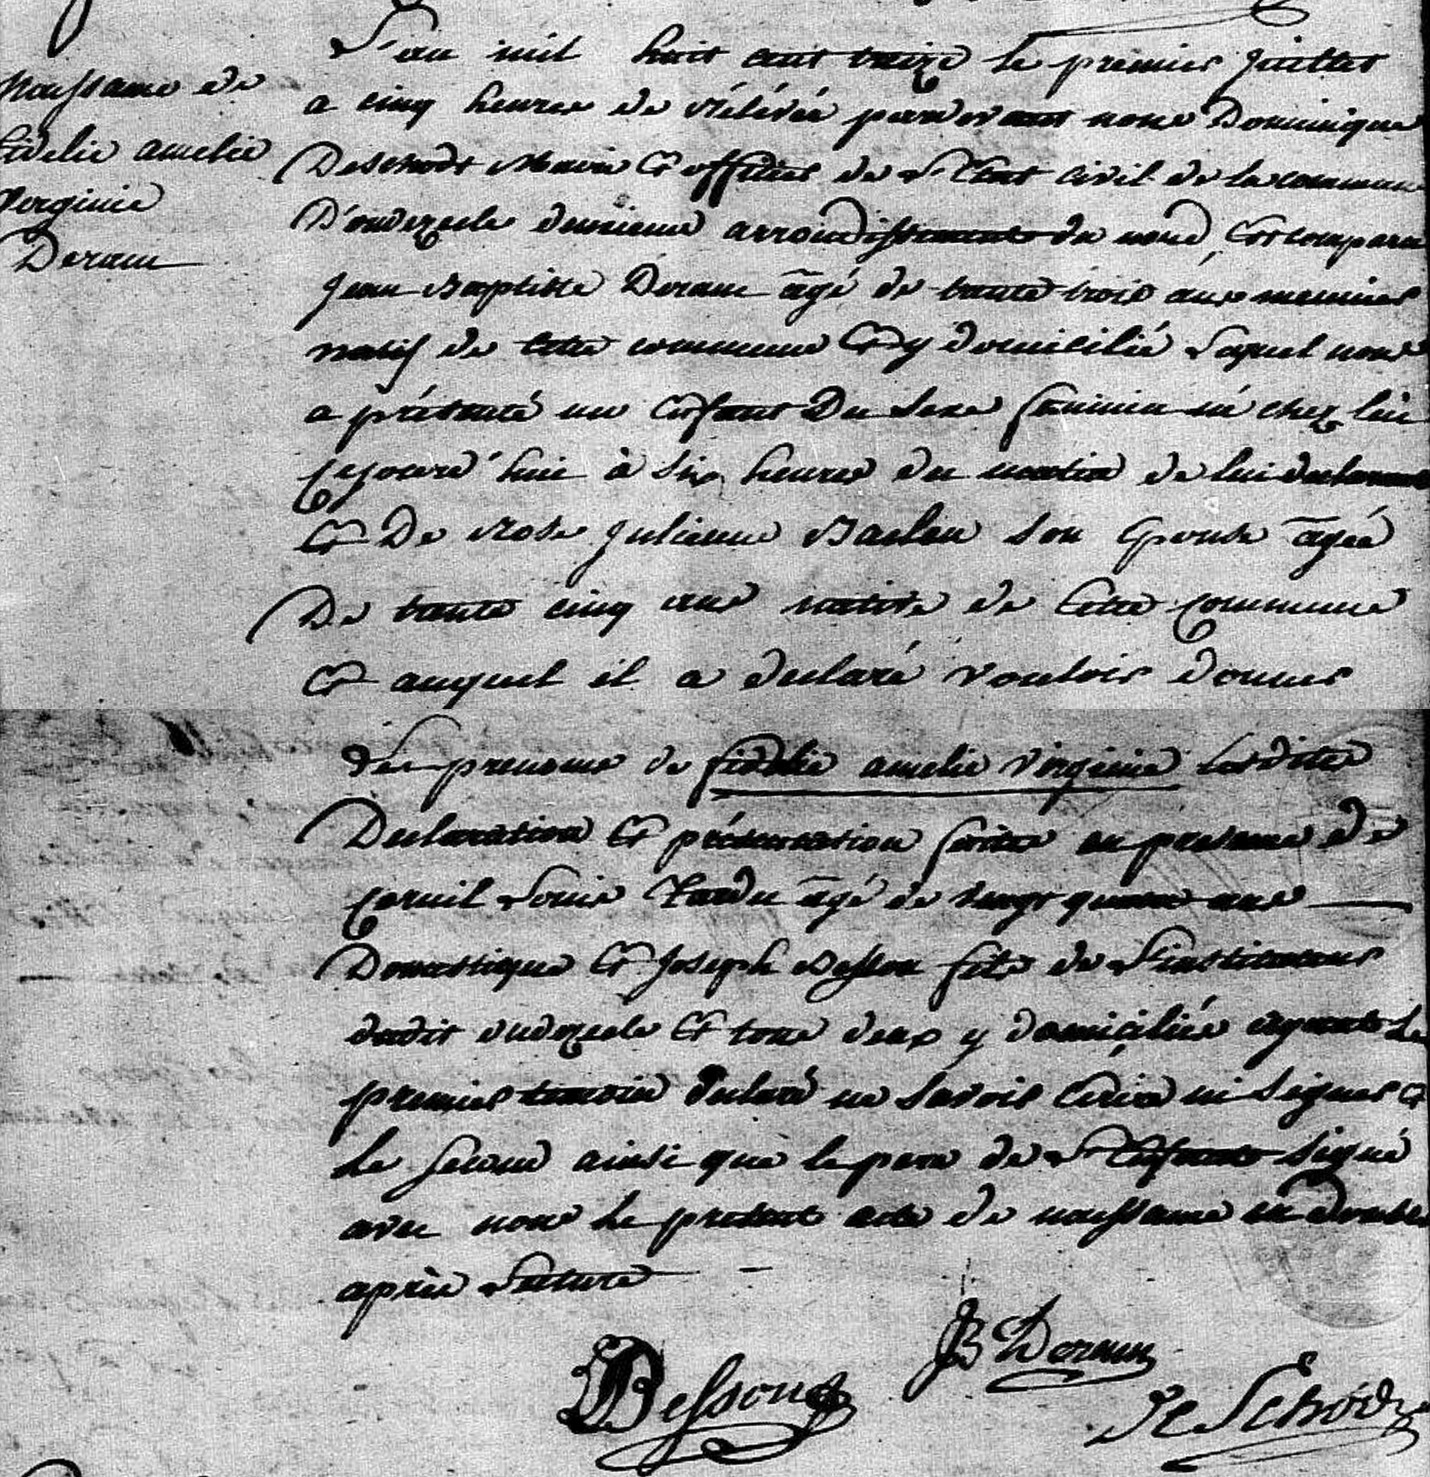 Naissance de
fidelie amelie
Virginie
Deram
L'an mil huit cent treize le premier Juillet
a cinq heures de rélévée pardevant nous Dominique
Deschodt Maire Et officier de L'Etat civil de la commune
D'oudezeele deuxieme arrondissement du nord Est comparu
Jean Baptiste Deram agé de trente trois ans
natif de cette commune Et y domicilié Laquel nous
a présenté un Enfant Du sexe feminin né chez lui
cejourd'hui à six heures du matin de lui declarant
Et De Rose Julienne Baelen son Epouse agée
De trente cinq ans native de Cette Commune
Et auquel il a declaré vouloir donner
des prenoms de fidelie amelie Virginie Lesdites
Declaration Et présentation faite en presence de
Cornil Louis agé de vingt quatre ans
Domestique Et Joseph Besson fils de L'instituteur
dudit oudezeele Et tous deux y domiciliés ayant le
premier temoin declaré ne savoir Ecrire ni signer Et
le second ainsi que le pere de L'Enfant signé
avec nous le present acte de naissance en double
après Lecture
JB Deram
Besson
De Schodt